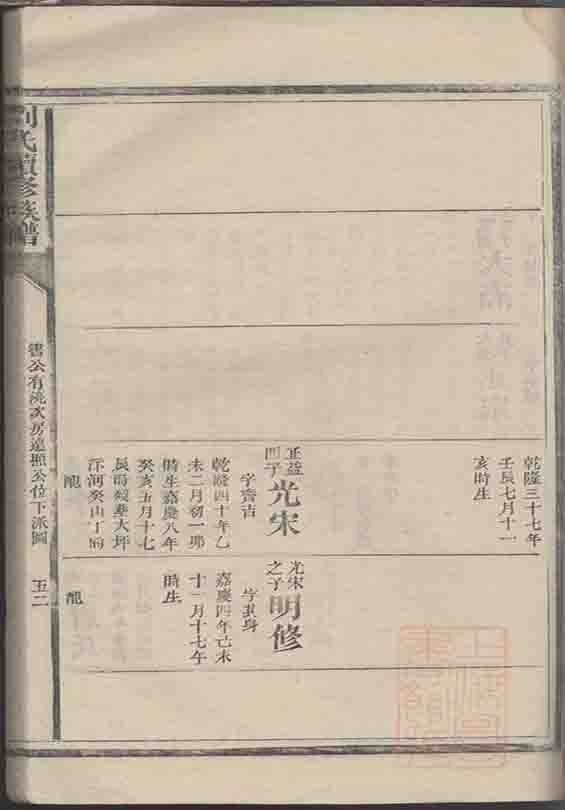 乾隆三十七年
壬辰七月十一
亥時生
正益
四子
光宋
字齊古
乾隆四十年乙
未二月初一卯
時生嘉慶八年
癸亥五月十七
辰時歿葬大坪
汗河癸山丁向
光宋
之子
明修
嘉慶四年己未
十一月十七午
時生
劉氏續修族譜
書公有洮次房遠照公位下派圖
五二